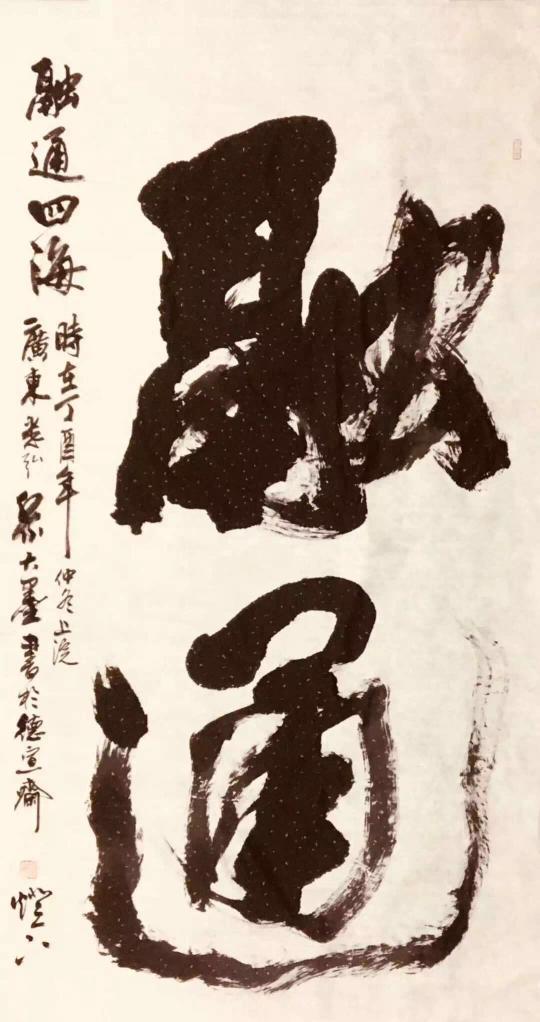 融通
融通四海
時在丁酉年仲冬上浣
廣東
大墨書於德宣齋
燈下